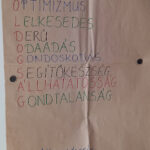 OPTIMIZMUS
LELKESEDÉS
DERŰ
ODAADÁS
GONDOSKODÁS
SEGÍTŐKÉSZSÉG
ÁLLHATATOSSÁG
GONDTALANSÁG